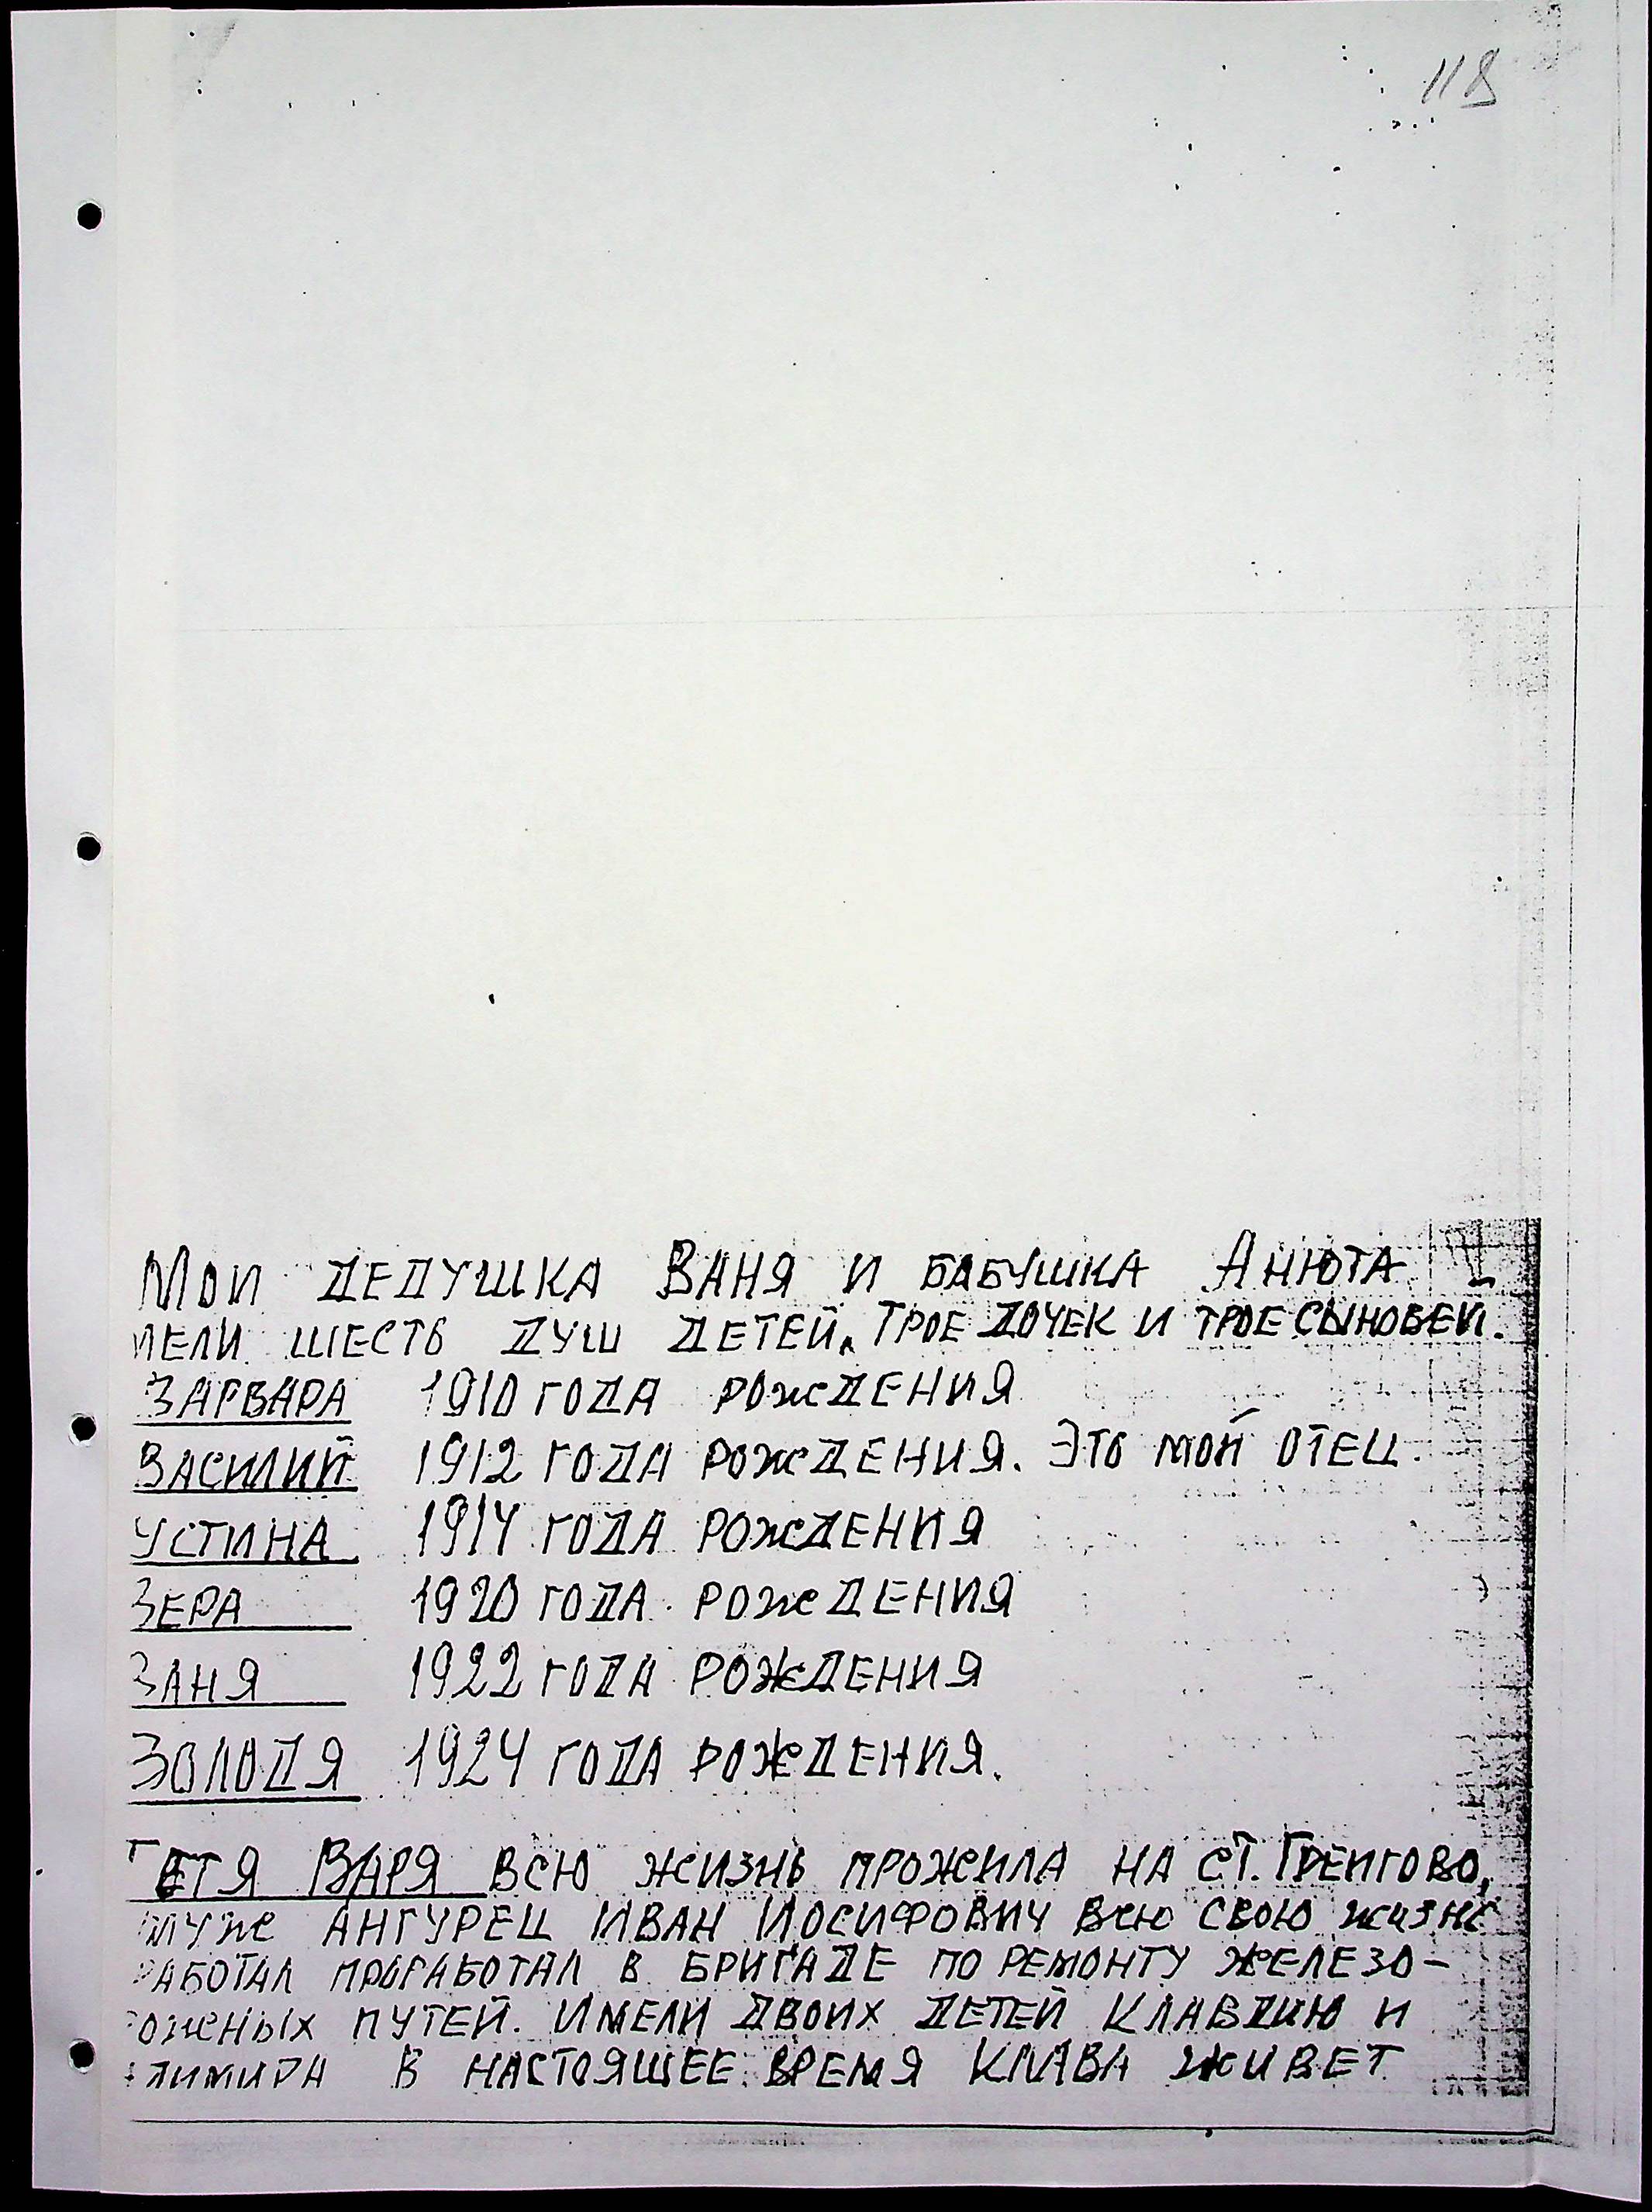 118
Мои дедушка Ваня и бабушка Анюта и-
мели шесть душ детей. Трое дочек и трое сыновей.
Варвара 1910 года рождения
Василий 1912 года рождения. Это мой отец.
Устина 1914 года рождения
Вера 1920 года рождения
Ваня 1922 года рождения
Володя 1924 года рождения.
Тетя Варя всю жизнь прожила на ст. Грейгово,
муж Ангурец Иван Иосифович всю свою жизнь
работал проработал в бригаде по ремонту железо-
рожных путей. Имели двоих детей Клавдию и
в настоящее время Клава живет